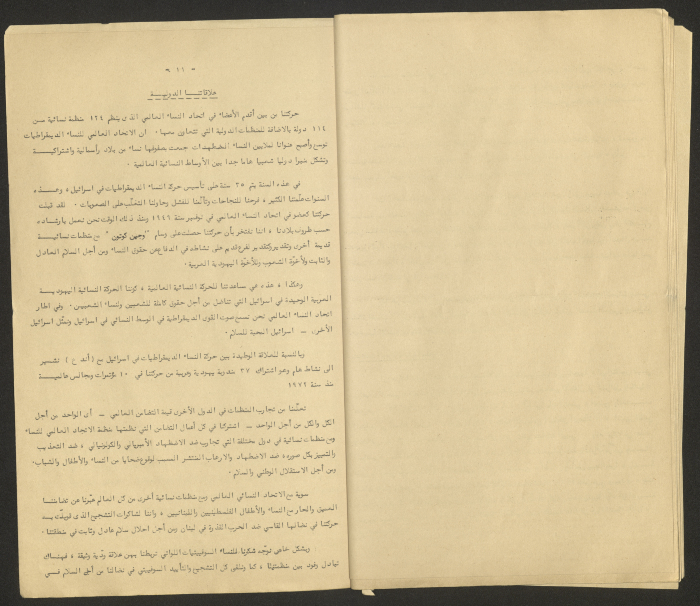 - ١١ -
علاقاتنـا الدوليـة
حركتنا من بين أقدم الأعضاء في اتحاد النساء العالمي الذى ينظم ١٢٤ منظمة نسائية مـن
١١٤ دولة بالاضافة للمنظمات الدولية التي تتعاون معها. ان الاتحاد العالمي للنساء الديمقراطيات
توسع وأصبح عنوانا لملايين النساء المضطهدات جمعت بصفوفها نساء من بلاد رأسمالية واشتراكيـة
وتشكل منبرا دوليا شعبيا هاما جدا بين الأوساط النسائية العالمية .
في هذه السنة يتم ٣٥ سنة على تأسيس حركة النساء الديمقراطيات في اسرائيل، وهـذه
السنوات علّمتنا الكثير، فرحنا للنجاحات وتألّمنا للفشل وحاولنا التغلّب على الصعوبات . لقد قبلت
حركتنا كعضو في اتحاد النساء العالمي في نوفمبر سنة ١٩٤٩ ومنذ ذلك الوقت نحن نعمل بارشاده
حسب ظروف بلادنا، اننا نفتخر بأن حركتنا حصلت على وسام "وجين كوتون" مع منظمات نسائيـة
قديمة أخرى وتقديركتقدير لفرع قديم على نشاطه في الدفاع عن حقوق النساء ومن أجل السلام العادل
والثابت ولأخوّة الشعوب وللأخوّة اليهودية العربية.
وهكذا، هذه هي مساهمتنا للحركة النسائية العالمية، كوننا الحركة النسائية اليهوديـة
العربية الوحيدة في اسرائيل التي تناضل من أجل حقوق كاملة للشعبين ولنساء الشعبين. وفي اطار
اتحاد النساء العالمي نحن نسمع صوت القوى الديمقراطية في الوسط النسائي في اسرائيل ونمثّل اسرائيل
الأخرى - اسرائيل المحبة للسلام.
وبالنسبة للعلاقة الوطيدة بين حركة النساء الديمقراطيات في اسرائيل مع (أ ند ع) نشـير
الى نشاط هام وهو اشتراك ٣٧ مندوبة يهودية وعربية من حركتنا في ١٠ مؤتمرات ومجالس عالميـة
منذ سنة ١٩٧٢
تعلّمنا من تجارب المنظمات في الدول الأخرى قيمة التضامن العالمي - أى الواحد من أجل
الكل والكل من أجل الواحد - اشتركنا في كل أعمال التضامن التي نظمتها خطط الاتحاد العالمي للنساء
ومن منظمات نسائية في دول مختلفة التي تحارب ضد الاضطهاد الأمبريالي والكولونيالي، ضد التعذيب
والتمييز بكل صوره ضد الاضطهاد والارهاب المنتشر المسبب لوقوع ضحايا من النساء والأطفال والشباب.
ومن أجل الاستقلال الوطني والسلام.
سوية مع الاتحاد النسائي العالمي ومع منظمات نسائية أخرى من كل العالم عبّرنا عن تضامننـا
العميق والحار مع النساء والأطفال الفلسطينيين واللبنانيين، واننا لشاكرات التشجيع الذى قوبلت بـه
حركتنا في نضالها القاسي ضد الحرب القذرة في لبنان ومن أجل احلال سلام عادل وثابت في منطقتنا.
وبشكل خاص نوجّه شكرنا للنساء السوفييتيات اللواتي تربطنا بهن علاقة ودّية وثيقة، فهنـاك
تبادل وفود بين منظمتينا، كما ونلقى كل التشجيع والتأييد السوفييتي في نضالنا من أجل السلام فـي